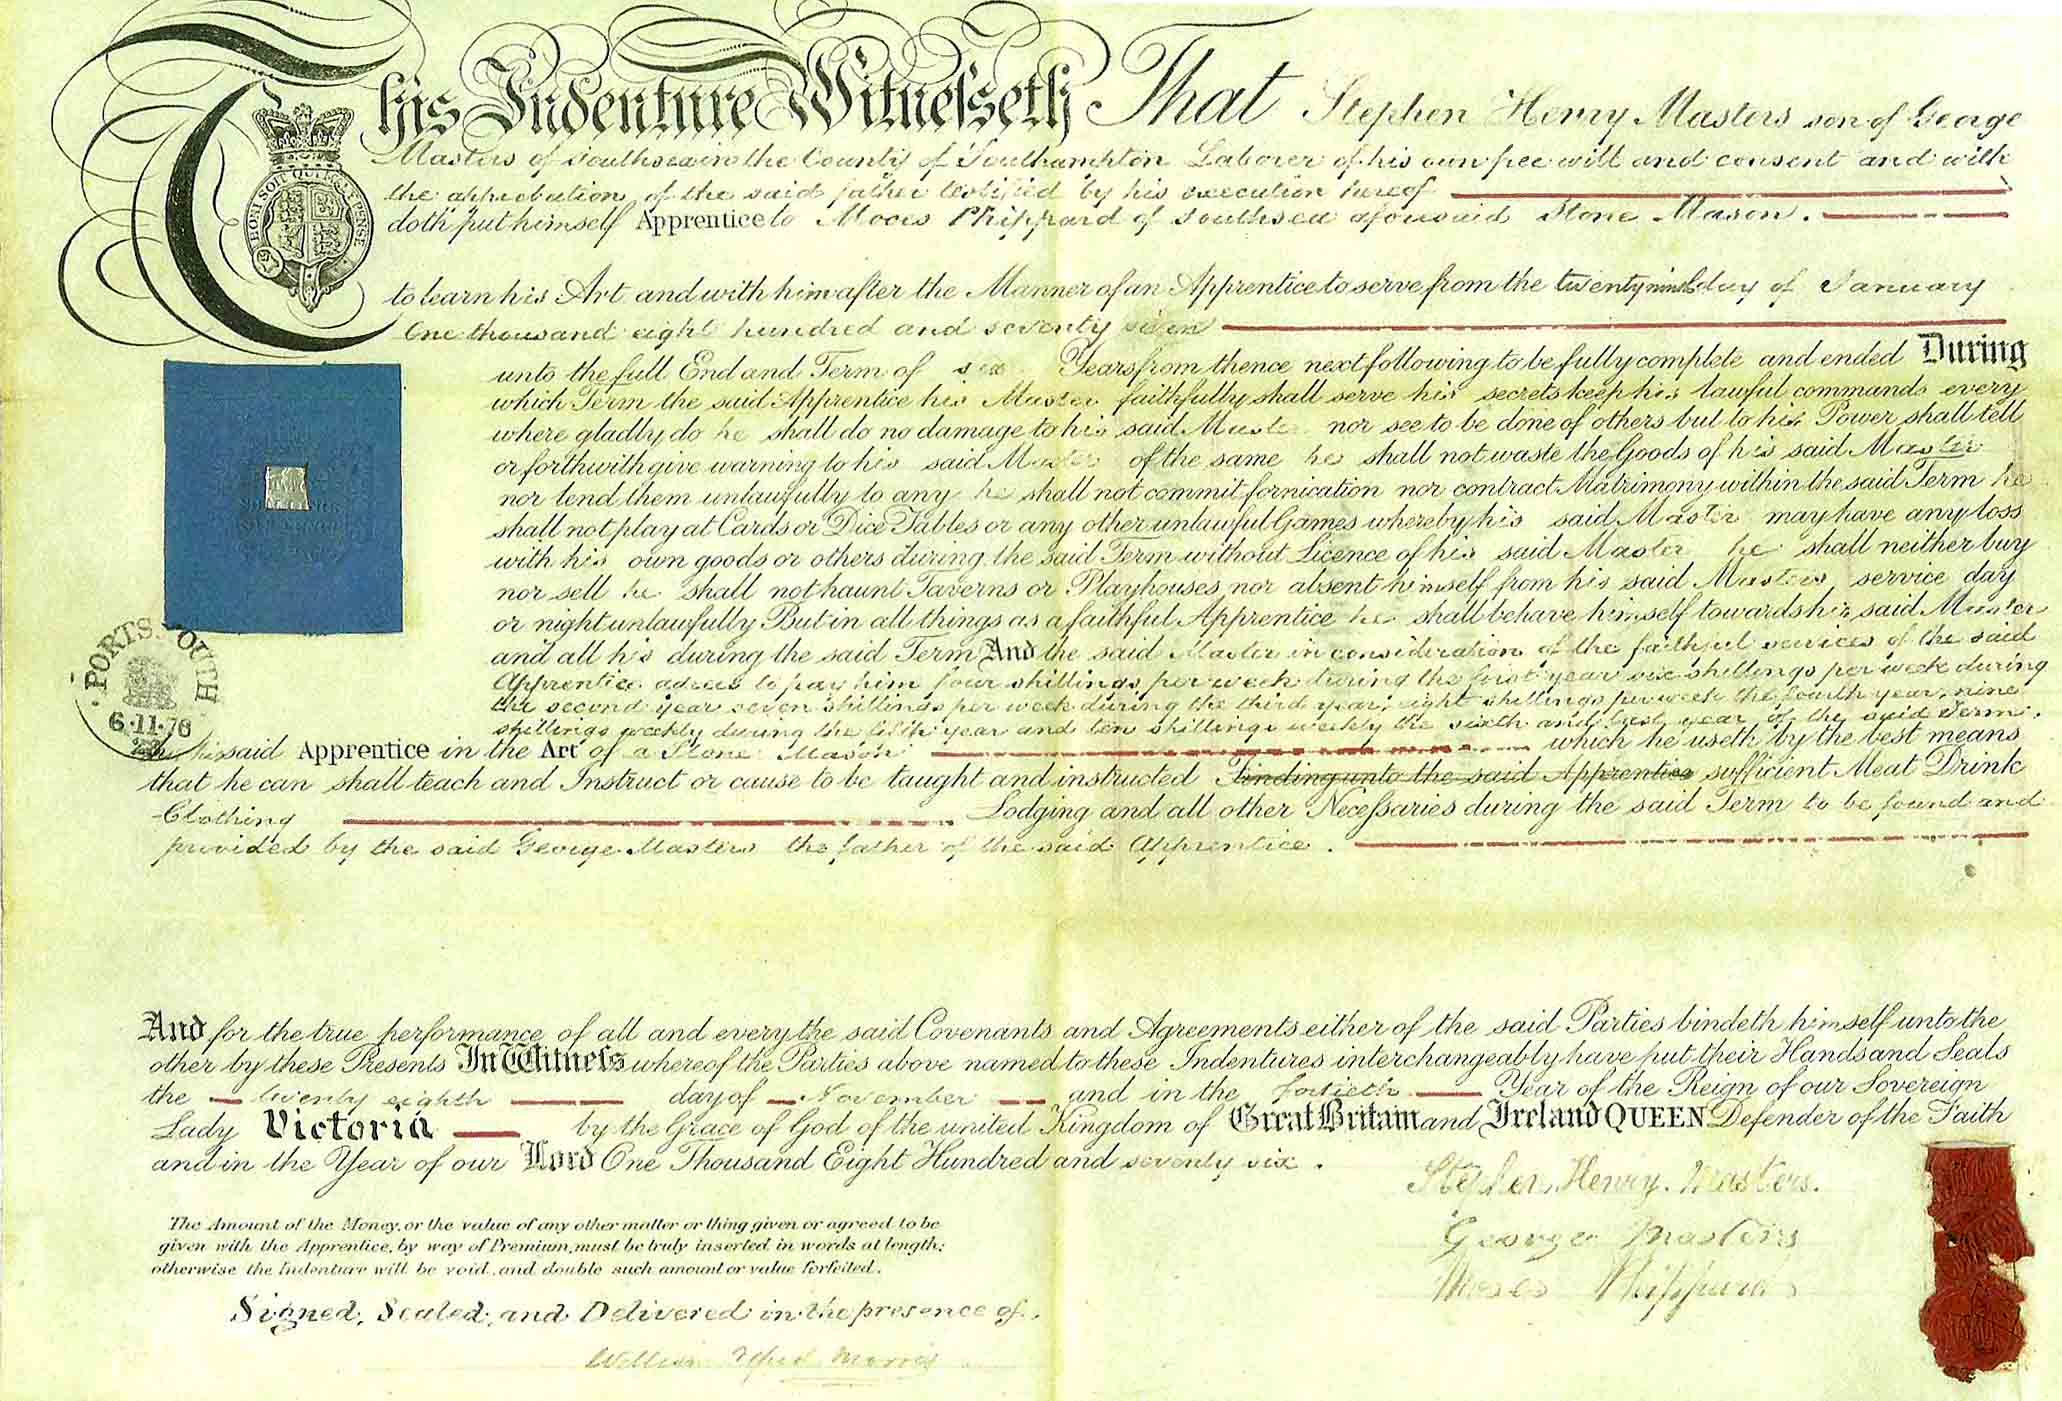 This Indenture Witnesseth That Stephen Henry Masters son of George
Masters of Southsea in the County of Southampton Laborer of his own free will and consent and with
the approbation of the said father testified by his execution hereof
doth put himself Apprentice to Moses Phippard of Southsea aforesaid Stone Mason.
to learn his Art and with him after the Manner of an Apprentice to serve from the twenty ninth day of January
One thousand eight hundred and seventy
unto the full End and Term of six Years from thence next following to be fully complete and ended During
which Term the said Apprentice his Master faithfully shall serve his secrets keep his lawful commands every
where gladly do he shall do no damage to his said Master nor see to be done of others but to his Power shall tell
or forthwith give warning to his said Master of the same he shall not waste the Goods of his said Master
nor lend them unlawfully to any he shall not commit fornication nor contract Matrimony within the said Term he
shall not play at Cards or Dice Tables or any other unlawful Games whereby his said Master may have any loss
with his own goods or others during the said Term without Licence of his said Master he shall neither buy
nor sell he shall not haunt Taverns or Playhouses nor absent himself from his said Masters service day
or night unlawfully But in all things as a faithful Apprentice he shall behave himself towards his said Master
and all his during the said Term And the said Master in consideration of the faithful services of the said
Apprentice agrees to pay him four shillings per week during the first year six shillings per week during
the second year seven shillings per week during the third year, eight shillings per week the fourth year, nine
shillings weekly during the fifth year and ten shillings weekly the sixth and last year of the said Term.
said Apprentice in the Art of a Stone Mason which he useth by the best means
that he can shall teach and Instruct or cause to be taught and instructed Finding unto the said Apprentice sufficient Meat Drink
Clothing Lodging and all other Necessaries during the said Term to be found and
provided by the said George Masters the father of the said Apprentice.
HONI SOIT QUI MAL Y PENSE
PORTSMOUTH
6·11·76
And for the true performance of all and every the said Covenants and Agreements either of the said Parties bindeth himself unto the
other by these Presents In Witness whereof the Parties above named to these Indentures interchangeably have put their Hands and Seals
the twenty eighth day of November and in the fortieth Year of the Reign of our Sovereign
Lady Victoria by the Grace of God of the united Kingdom of Great Britain and Ireland QUEEN Defender of the Faith
and in the Year of our Lord One Thousand Eight Hundred and seventy six.
Stephen Henry Masters.
George Masters
Moses Phippard
The Amount of the Money, or the value of any other matter or thing given or agreed to be
given with the Apprentice, by way of Premium, must be truly inserted in words at length;
otherwise the Indenture will be void, and double such amount or value forfeited.
Signed, Sealed, and Delivered in the presence of.
William Morris